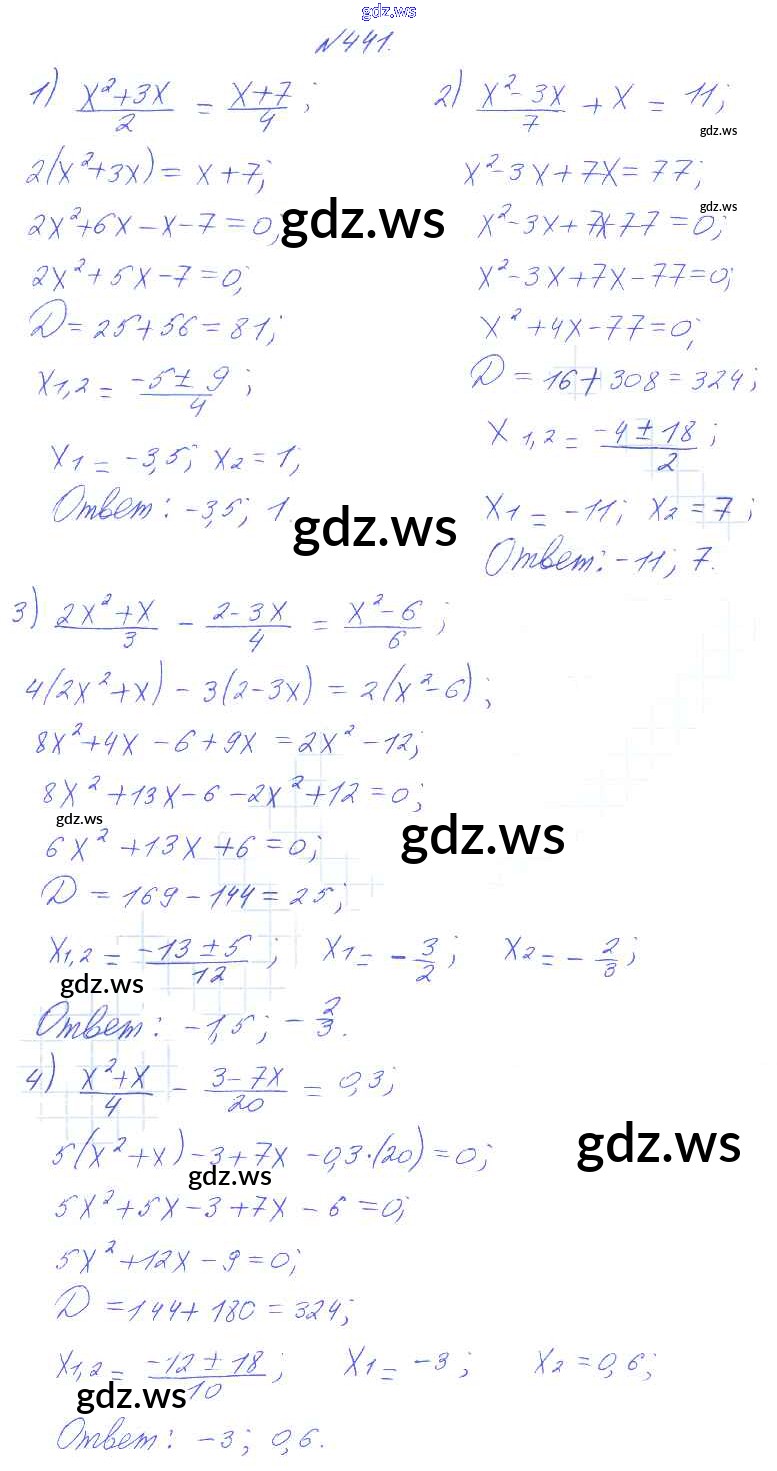 gdz.ws
№441.
1) (x²+3x)/2 = (x+7)/4;
2(x²+3x) = x+7;
2x²+6x-x-7=0;
gdz.ws
2x²+5x-7=0;
D=25+56=81;
x1,2 = (-5±9)/4;
x1 = -3,5; x2=1;
Ответ: -3,5; 1.
gdz.ws
2) (x²-3x)/7 + x = 11;
gdz.ws
x²-3x+7x=77;
gdz.ws
x²-3x+7x-77=0;
x²-3x+7x-77=0;
x²+4x-77=0;
D=16+308=324;
x1,2 = (-4±18)/2;
x1 = -11; x2=7;
Ответ: -11; 7.
3) (2x²+x)/3 - (2-3x)/4 = (x²-6)/6;
4(2x²+x) - 3(2-3x) = 2(x²-6);
8x²+4x-6+9x=2x²-12;
8x²+13x-6-2x²+12=0;
gdz.ws
gdz.ws
6x²+13x+6=0;
D=169-144=25;
x1,2 = (-13±5)/12; x1 = -3/2; x2 = -2/3;
gdz.ws
Ответ: -1,5; -2/3.
4) (x²+x)/4 - (3-7x)/20 = 0,3;
gdz.ws
5(x²+x)-3+7x-0,3·(20)=0;
gdz.ws
5x²+5x-3+7x-6=0;
5x²+12x-9=0;
D=144+180=324;
x1,2 = (-12±18)/10; x1 = -3; x2=0,6;
gdz.ws
Ответ: -3; 0,6.